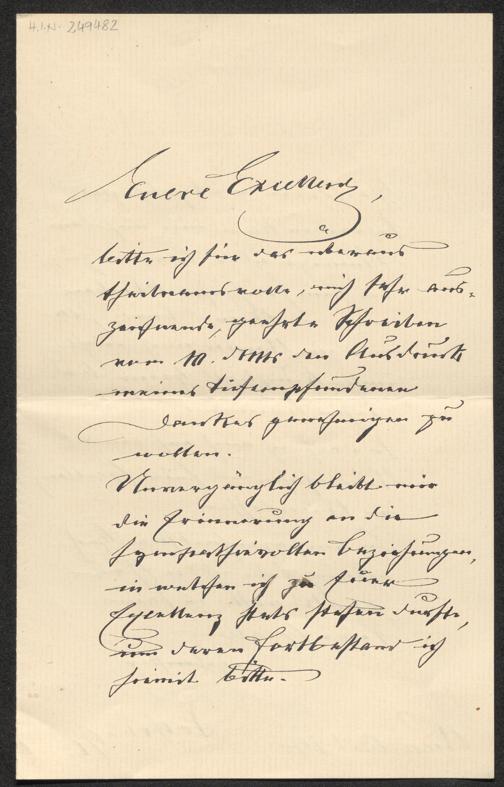 H.I.N. 249482
Euere Excellenz,
bitte ich für das überaus
theilnamsvolle, mich sehr aus-
zeichnende, geehrte Schreiben
vom 10. dMts den Ausdruck
meines tiefempfundenen
Dankes genehmigen zu
wollen.
Unvergänglich bleibt mir
die Erinnerung an die
sympathievollen Beziehungen,
in welchen ich zu Euer
Excellenz stets stehen durfte,
um deren Fortbestand ich
hiemit bitte.